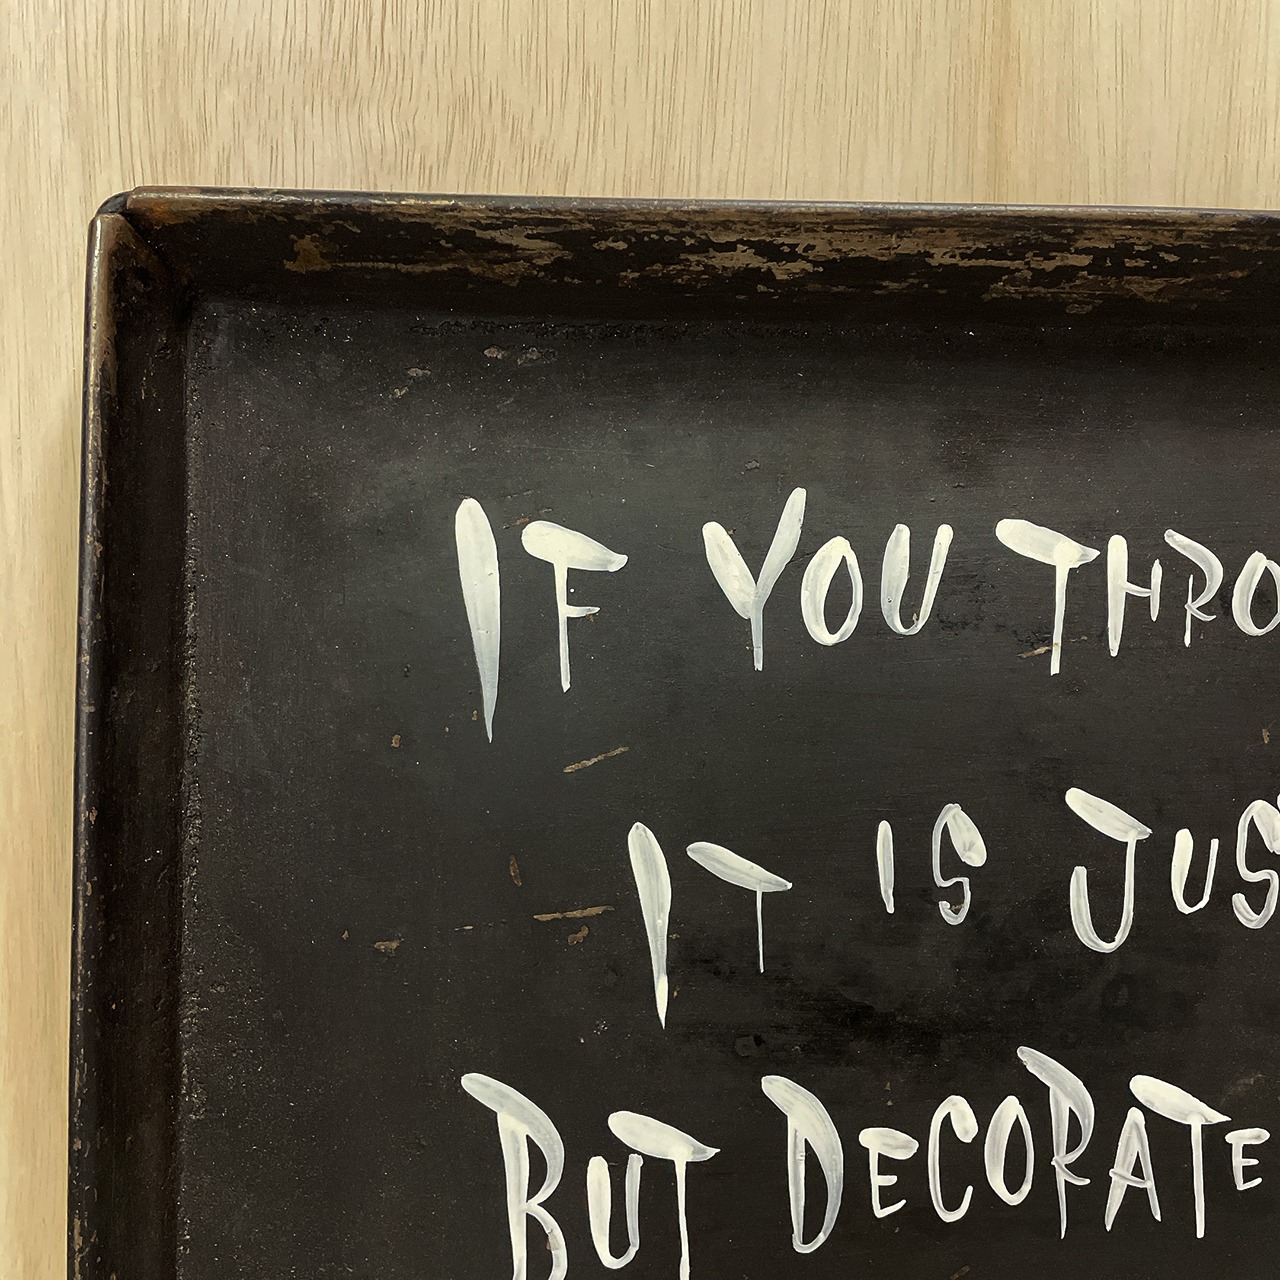 IF YOU THRO
IT IS JUS
BUT DECORATE